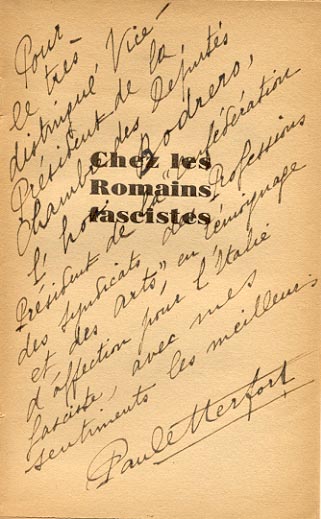 Pour
le très
distingué Vice-
Président de la
Chambre des Députés
l'hon. Bodrero,
Président de la "Confédération
des Syndicats des Professions
et des arts" en témoignage
d'affection pour l'Italie
fasciste, avec mes
sentiments les meilleurs
Paulette Herfort
Chez les
Romains
fascistes